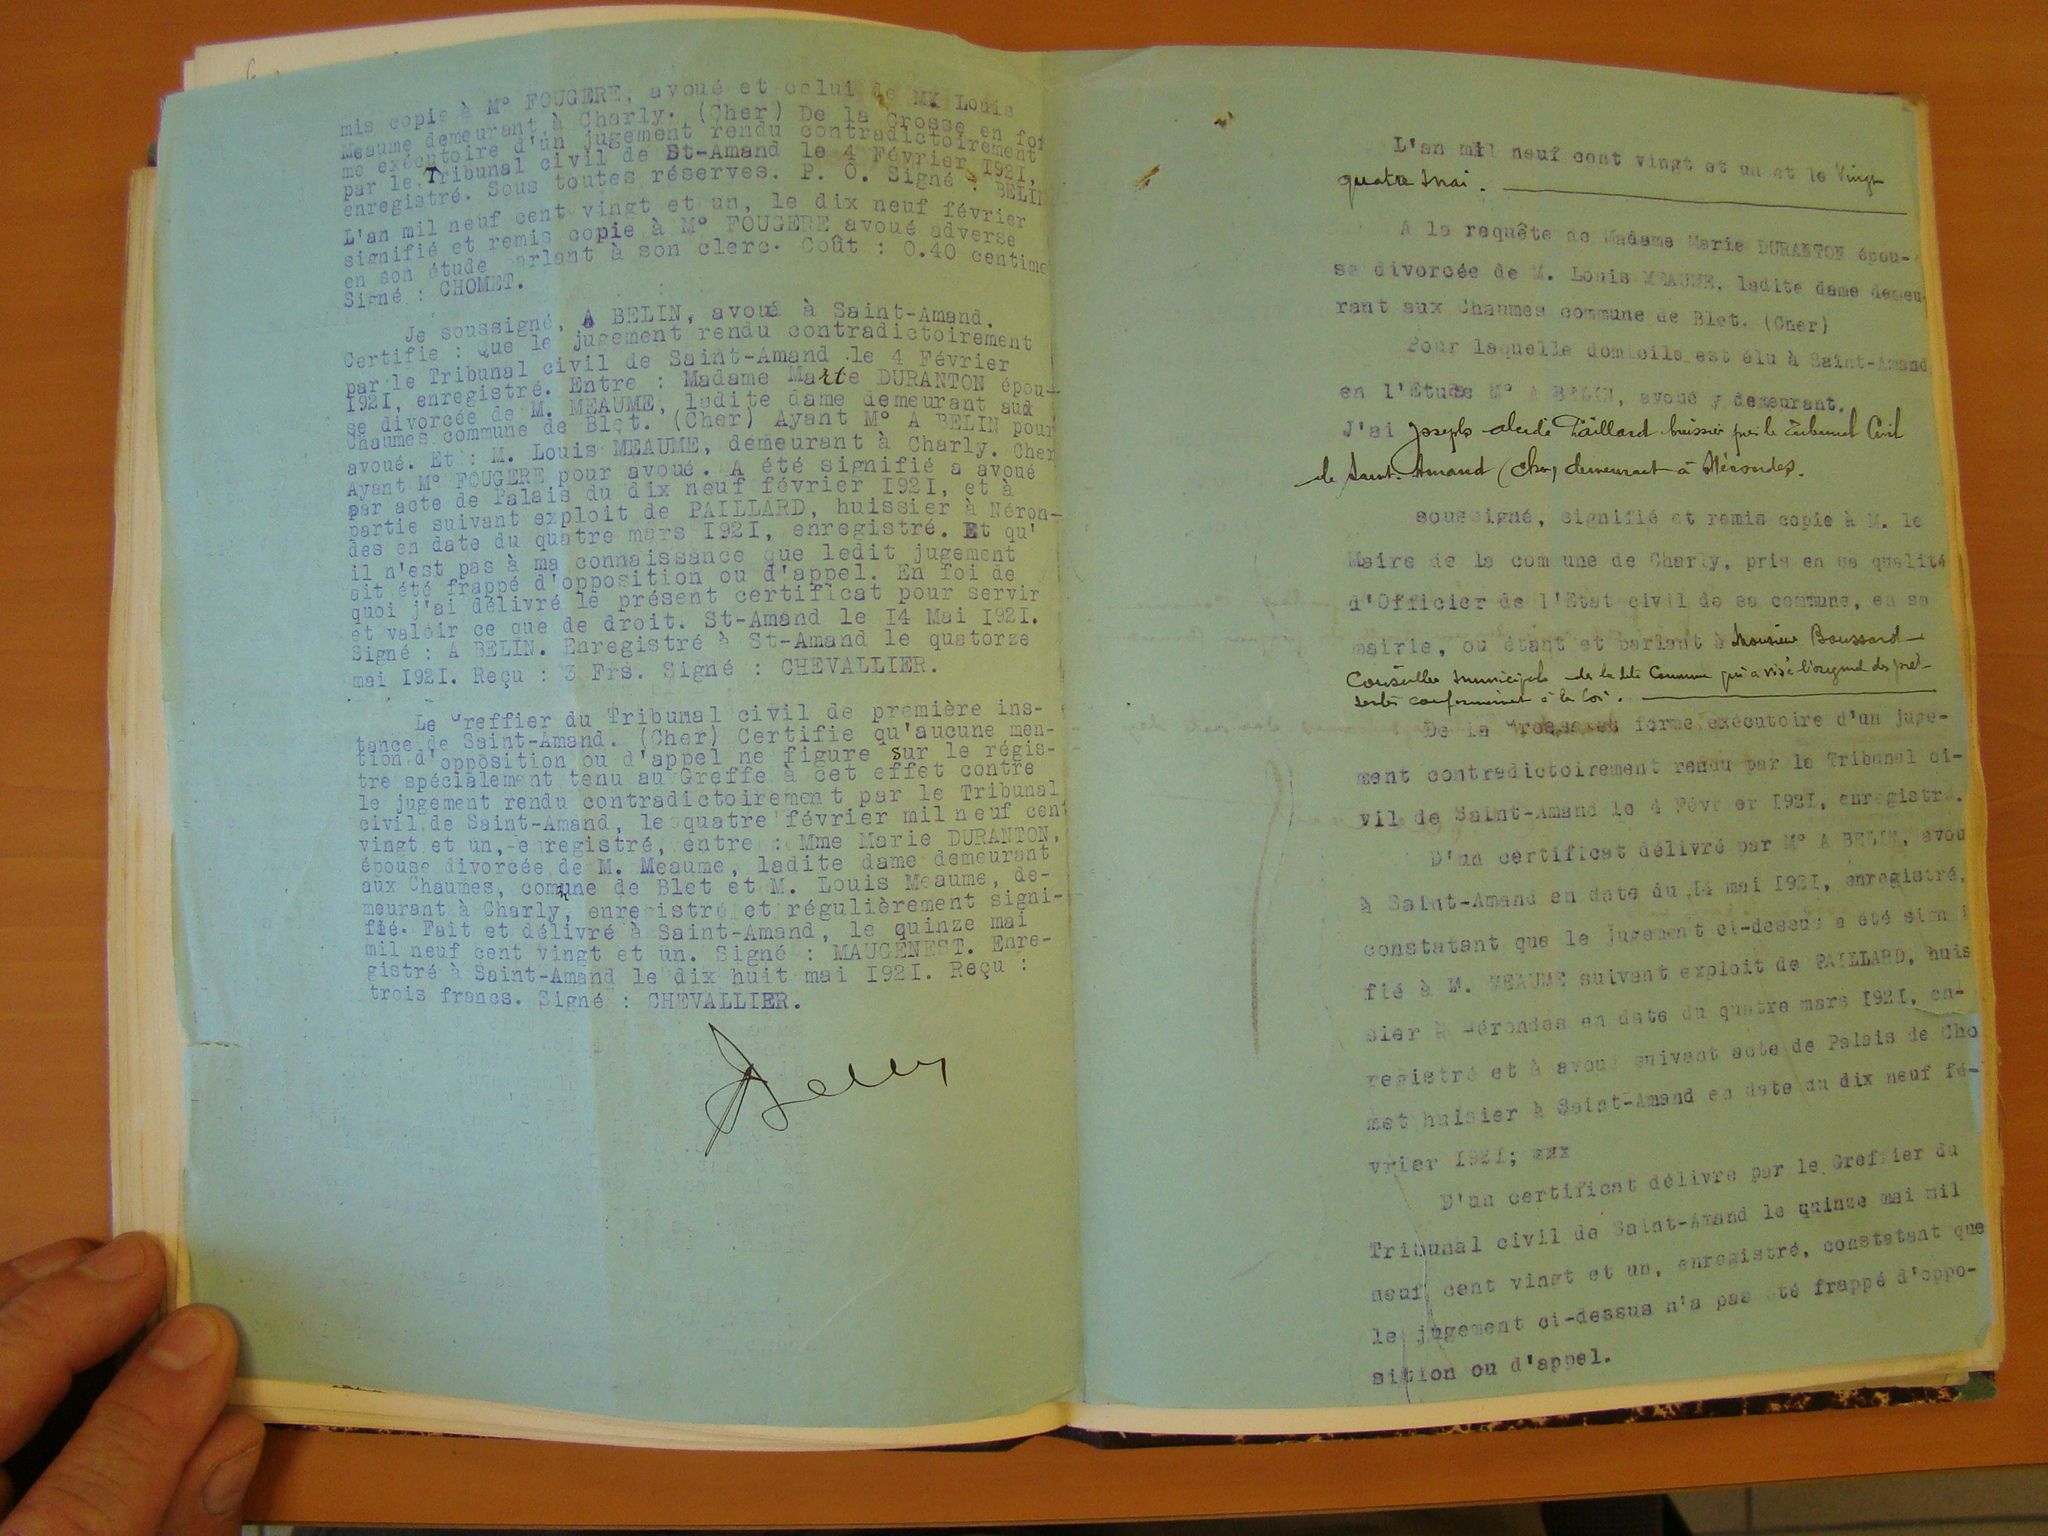 mis copie à M° FOUGERE, avoué et celui de MX Louis
Meaume demeurant à Charly. (Cher) De la Grosse en for
me exécutoire d'un jugement rendu contradictoirement
par le Tribunal civil de St-Amand le 4 Février 1921,
enregistré. Sous toutes réserves. P. O. Signé : BELIN
L'an mil neuf cent vingt et un, le dix neuf février
signifié et remis copie à M° FOUGERE avoué adverse
en son étude parlant à son clerc. Coût : 0.40 centime
Signé : CHOMET.
Je soussigné, A BELIN, avoué à Saint-Amand.
Certifie : Que le jugement rendu contradictoirement
par le Tribunal civil de Saint-Amand le 4 Février
1921, enregistré. Entre : Madame Marie DURANTON épou-
se divorcée de M. MEAUME, ladite dame demeurant aux
Chaumes commune de Blet. (Cher) Ayant M° A BELIN pour
avoué. Et : M. Louis MEAUME, demeurant à Charly. Cher
Ayant M° FOUGERE pour avoué. A été signifié a avoué
par acte de Palais du dix neuf février 1921, et à
partie suivant exploit de PAILLARD, huissier à Néron-
des en date du quatre mars 1921, enregistré. Et qu'
il n'est pas à ma connaissance que ledit jugement
ait été frappé d'opposition ou d'appel. En foi de
quoi j'ai délivré le présent certificat pour servir
et valoir ce que de droit. St-Amand le 14 Mai 1921.
Signé : A BELIN. Enregistré à St-Amand le quatorze
mai 1921. Reçu : 3 Frs. Signé : CHEVALLIER.
Le Greffier du Tribunal civil de première ins-
tance de Saint-Amand. (Cher) Certifie qu'aucune men-
tion d'opposition ou d'appel ne figure sur le régis-
tre spécialement tenu au Greffe à cet effet contre
le jugement rendu contradictoirement par le Tribunal
civil de Saint-Amand, le quatre février mil neuf cent
vingt et un, enregistré, entre : Mme Marie DURANTON,
épouse divorcée de M. Meaume, ladite dame demeurant
aux Chaumes, comune de Blet et M. Louis Meaume, de-
meurant à Charly, enregistré et régulièrement signi-
fié. Fait et délivré à Saint-Amand, le quinze mai
mil neuf cent vingt et un. Signé : MAUGENEST. Enre-
gistré à Saint-Amand le dix huit mai 1921. Reçu :
trois francs. Signé : CHEVALLIER.
L'an mil neuf cent vingt et un et le Vingt
quatre Mai.
A la requête de Madame Marie DURANTON épou-
se divorcée de M. Louis MEAUME, ladite dame demeu
rant aux Chaumes commune de Blet. (Cher)
Pour laquelle domicile est élu à Saint-Amand
en l'Etude M° A BELIN, avoué y demeurant.
J'ai Joseph Alcide Paillard huissier près le Tribunal Civil
de Saint-Amand (Cher) demeurant à Nérondes.
soussigné, signifié et remis copie à M. le
Maire de la commune de Charly, pris en sa qualité
d'Officier de l'Etat civil de sa commune, en sa
mairie, où étant et parlant à Monsieur Boussard
Conseiller municipal de la dite Commune qui a visé l'original des pré-
sentes conformément à la loi.
De la Grosse et forme exécutoire d'un juge-
ment contradictoirement rendu par le Tribunal ci-
vil de Saint-Amand le 4 Février 1921, enregistré.
D'un certificat délivré par M° A BELIN, avou
à Saint-Amand en date du 14 mai 1921, enregistré,
constatant que le jugement ci-dessus a été signi
fié à M. MEAUME suivant exploit de PAILLARD, huis
sier à Nérondes en date du quatre mars 1921, en-
registré et à avoué suivant acte de Palais de Cho
met huisier à Saint-Amand en date du dix neuf fé-
vrier 1921; xxx
D'un certificat délivré par le Greffier du
Tribunal civil de Saint-Amand le quinze mai mil
neuf cent vingt et un, enregistré, constatant que
le jugement ci-dessus n'a pas été frappé d'oppo-
sition ou d'appel.